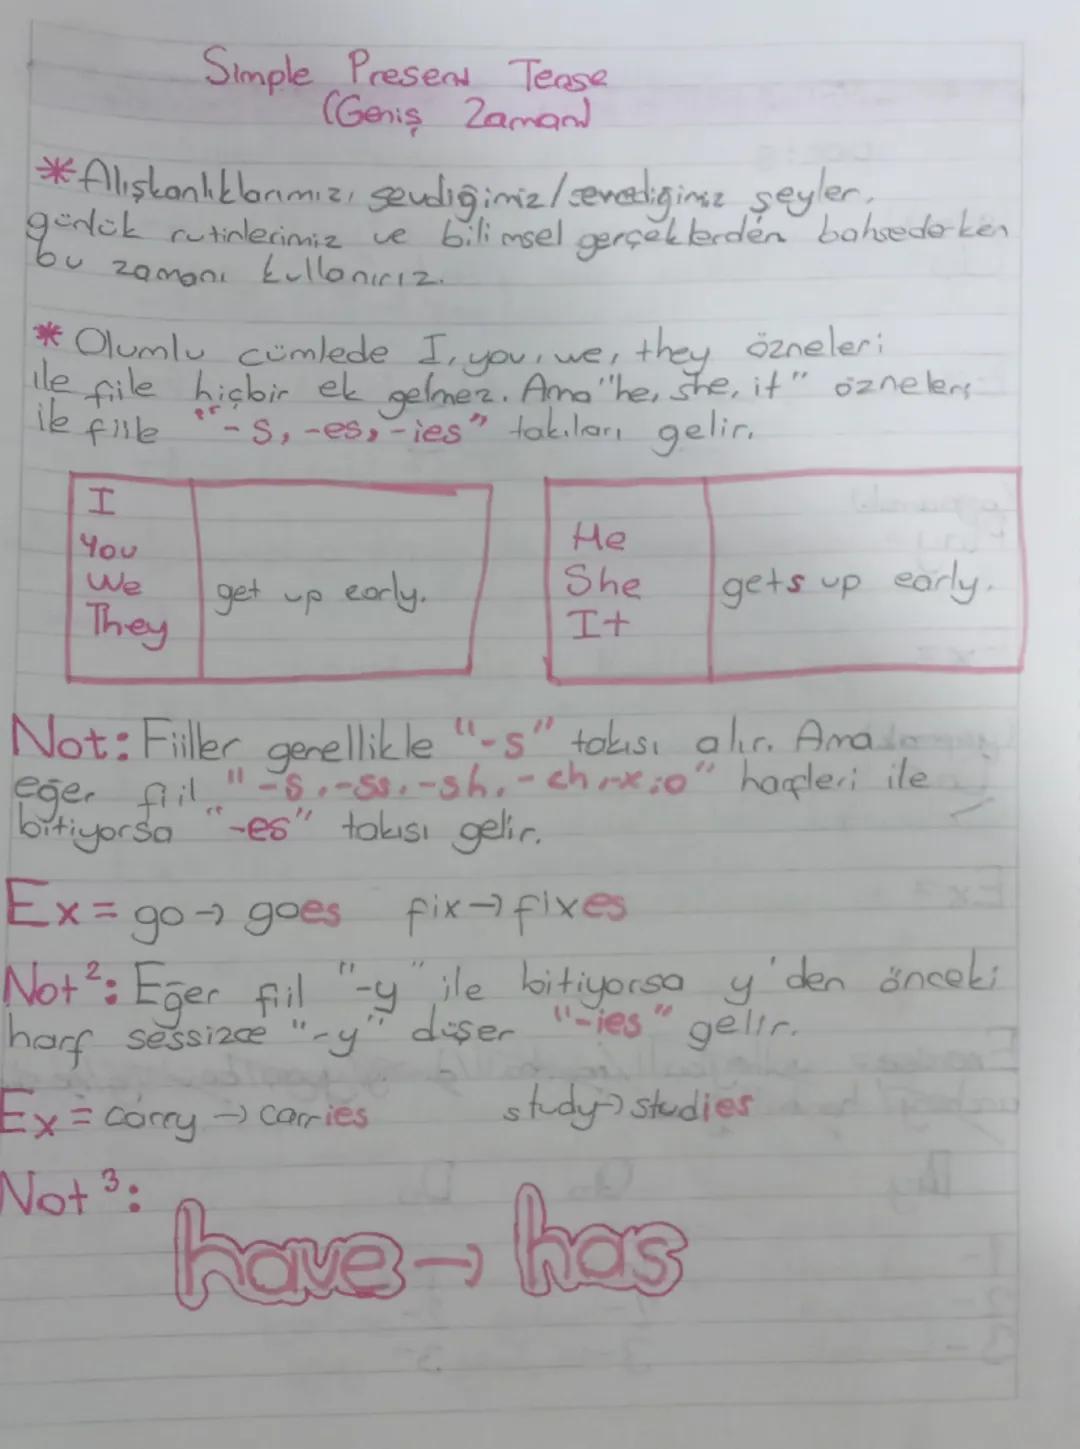 Simple Present Tense
(Geniş Zaman)
*Alışkanlıklarımız, sevdiğimiz/sevmediğimiz şeyler,
günlük rutinlerimiz ve bilimsel gerçeklerden bahsederken
bu zamanı kullanırız.
* Olumlu cümlede I, you, we, they özneleri
ile fiile hiçbir ek gelmez. Ama "he, she, it" özneleri
ile fiile "-s, -es, -ies" takıları gelir.
I
You
We
They
get up early.
He
She
It
gets up early.
Not: Fiiller genellikle "-s" takısı alır. Ama
eğer fiil "-s, -ss, -sh, -ch, -x, o" harfleri ile
bitiyorsa "-es" takısı gelir.
Ex = go → goes fix → fixes
Not²: Eğer fiil "-y" ile bitiyorsa y'den önceki
harf sessizce "-y" düşer "-ies" gelir.
Ex = carry → carries study → studies
Not³:
have → has